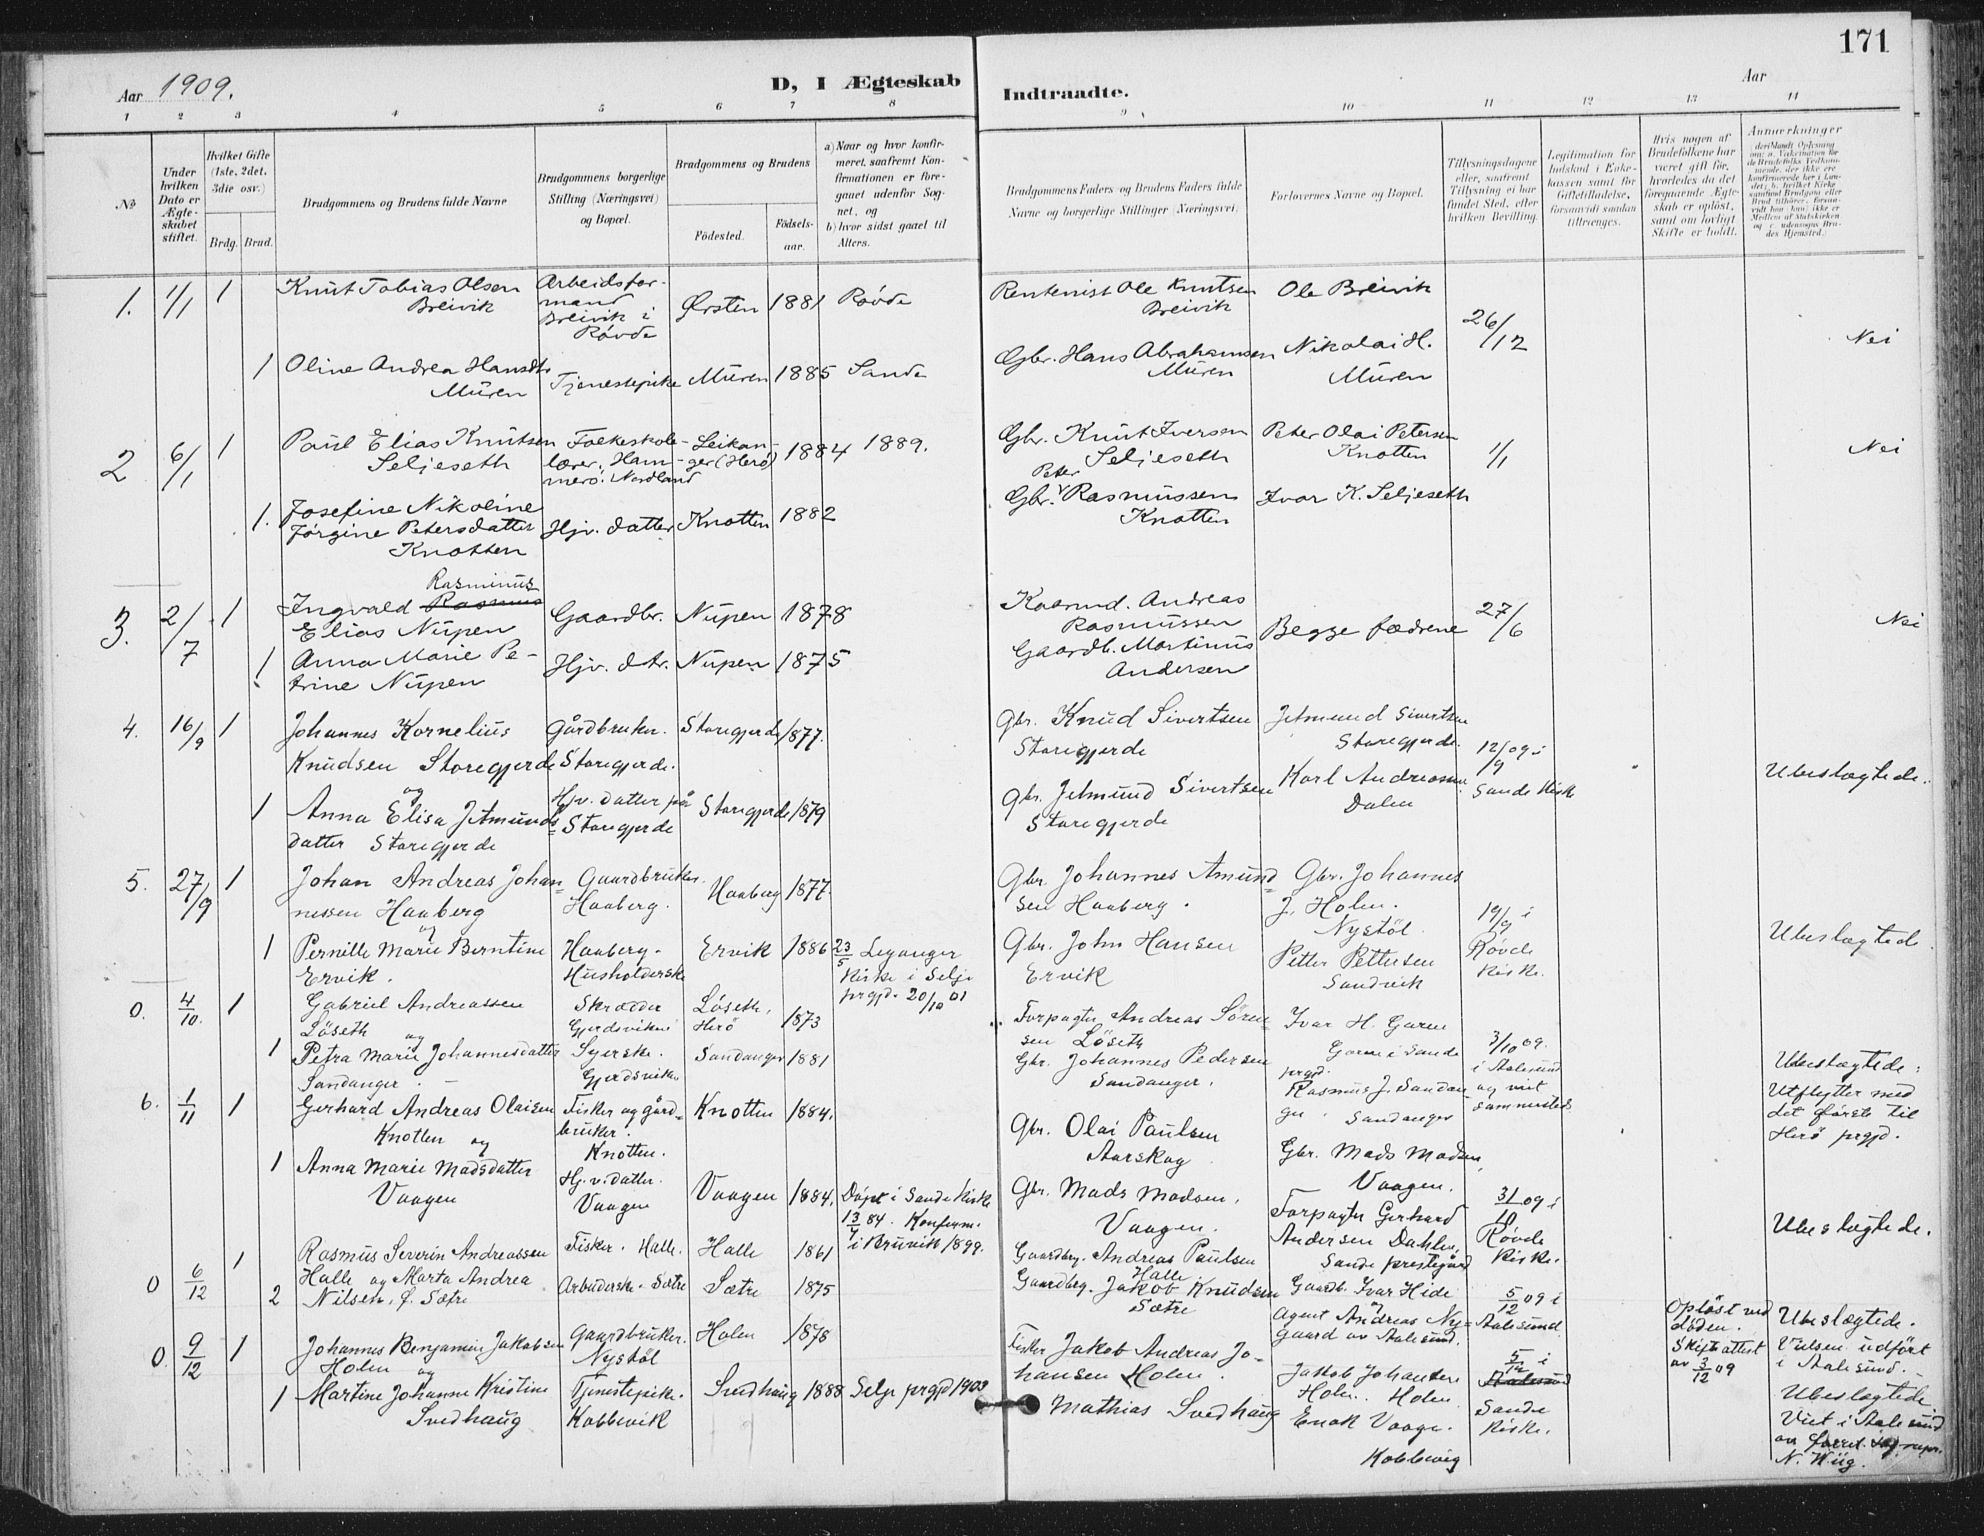 171
Aar 1909.
D, I Ægteskab Indtraadte.
Aar
1 2 3 4 5 6 7 8 9 10 11 12 13 14
No
Under hvilken Dato er Ægteskabet stiftet.
Hvilket Gifte (1ste, 2det, 3die osv.)
Brdg. Brud.
Brudgommens og Brudens fulde Navne
Brudgommens borgerlige Stilling (Næringsvei) og Bopæl.
Brudgommens og Brudens
Fødested.
Fødselsaar.
a) Naar og hvor konfirmeret, saafremt Konfirmationen er foregaaet udenfor Sognet, og
b) hvor sidst gaaet til Alters.
Brudgommens Faders og Brudens Faders fulde Navne og borgerlige Stillinger (Næringsvei)
Forlovernes Navne og Bopæl.
Tillysningsdagene eller, saafremt Tillysning ei har fundet Sted, efter hvilken Bevilling.
Legitimation for Indskud i Enkekassen samt for Giftetilladelse, forsaavidt saadan tiltrænges.
Hvis nogen af Brudefolkene har været gift før, hvorledes da det foregaaende Ægteskab er opløst, samt om lovligt Skifte er holdt.
Anmerkninger
1. 1/1 1 Knut Tobias Olsen Breivik Arbeidsformand Breivik i Røvde Ørsten 1881 Røvde Rentenist Ole Knutsen Breivik Ole Breivik
26/12 Nei
1 Oline Andrea Hansdtr Muren Tjenestepike Muren 1885 Sande Gbr. Hans Abrahamsen Muren Nikolai H. Muren
2 6/1 1 Paul Elias Knutsen Seljeseth Folkeskolelærer, Hammerö. Nordland Leikanger (Herö) 1884 1889. Gbr. Knut Iversen Seljeseth Peter Olai Petersen Knotten 1/1 Nei
1. Josefine Nikoline Jørgine Petersdatter Knotten Hjv. datter Knotten 1882 Gbr. Peter Rasmussen Knotten Ivar K. Seljeseth
3. 2/7 1 Ingvald Rasmus Rasminus Elias Nupen Gaardbr. Nupen 1878 Kaarmd. Andreas Rasmussen Begge fædrene 27/6 Nei
1 Anna Marie Petrine Nupen Hjv. dtr. Nupen 1875 Gaardb. Martinus Andersen
4. 16/9 1 Johannes Kornelius Knudsen Storegjerde og Gårdbruker. Storegjerde. Storegjerde 1877. Gbr. Knud Sivertsen Storegjerde Jetmund Sivertsen Storegjerde. 12/9 09 i Sande Kirke
1 Anna Elisa Jetmunds=datter Storegjerde Hjv. datter på Storegjerde Storegjerde 1879 Gbr. Jetmund Sivertsen Storegjerde Karl Andreasen Dalen Ubeslægtede.
5. 27/9 1 Johan Andreas Johan=nessen Haaberg og Gaardbruker. Haaberg. Haaberg 1877. Gbr. Johannes Amund=sen Haaberg. Gbr. Johannes J. Holen. Nystöl. 19/9 i Røvde Kirke.
1 Pernille Marie Berntine Ervik. Haaberg. Husholderske Ervik 1886 23/5 Leganger Kirke i Selje prgjd. 20/10 01 Gbr. John Hansen Ervik Petter Pettersen Sandvik Ubeslægtede
0. 4/10. 1 Gabriel Andreassen Löseth og Skrædder Gjerdsviken Löseth, Herö 1873 Forpagter Andreas Sören=sen Löseth Ivar H. Gurne Gurne i Sande prgjd. 3/10 09. i Aalesund og viet sammesteds
1 Petra Marie Johannesdatter Sandanger. Syerske. Gjerdsviken Sandanger 1881 Gbr. Johannes Pedersen Sandanger. Rasmus J. Sandanger. Sandanger Ubeslægtede. Utflytter med det første til Herö prgjd.
6. 1/11 1 Gerhard Andreas Olaisen Knotten og Fisker og gård=bruker. Knotten. Knotten 1884. Gbr. Olai Paulsen Aarskog Gbr. Mads Madsen, Vaagen. 31/10 09 i Røvde Kirke.
1 Anna Marie Madsdatter Vaagen Hj.v. datter. Vaagen Vaagen 1884. Døpt i Sande Kirke 13/4 84. Konfirm. i Bruvik 1899. Gbr. Mads Madsen. Vaagen. Forpagter Gerhard Andersen Dahlen, Sande prestegård Ubeslægtede.
0 6/12 1 Rasmus Severin Andreassen Halle og Fisker. Halle. Halle 1861 Gaardbrg. Andreas Paulsen Halle Gaardb. Ivar Hide 5/12 09 i Aalesund
2 Marta Andrea Nilsen, f. Sætre Arbeiderske. Sætre Sætre 1875 Gaardbrg. Jakob Knudsen Sætre Agent Andreas Ny=gaard av Aalesund. Opløst ved døden. Skifteattest av 3/12 09 Ubeslægtede. Vielsen udført i Aalesund.
0. 9/12 1 Johannes Benjamin Jakobsen Holen og Gaardbruker. Nystöl Holen 1878 Fisker Jakob Andreas Johansen Holen. Jakob Johansen Holen. Holen 5/12 i Aalesund Sande Kirke.
1 Martine Johanne Kristine Svedhaug Tjenestepike. Kobbevik Svedhaug 1888 Selje prgjd 1903 Mathias Svedhaug Enok Vaage. Kobbevig Ubeslægtede. Viet i Aalesund av N. Wiig.